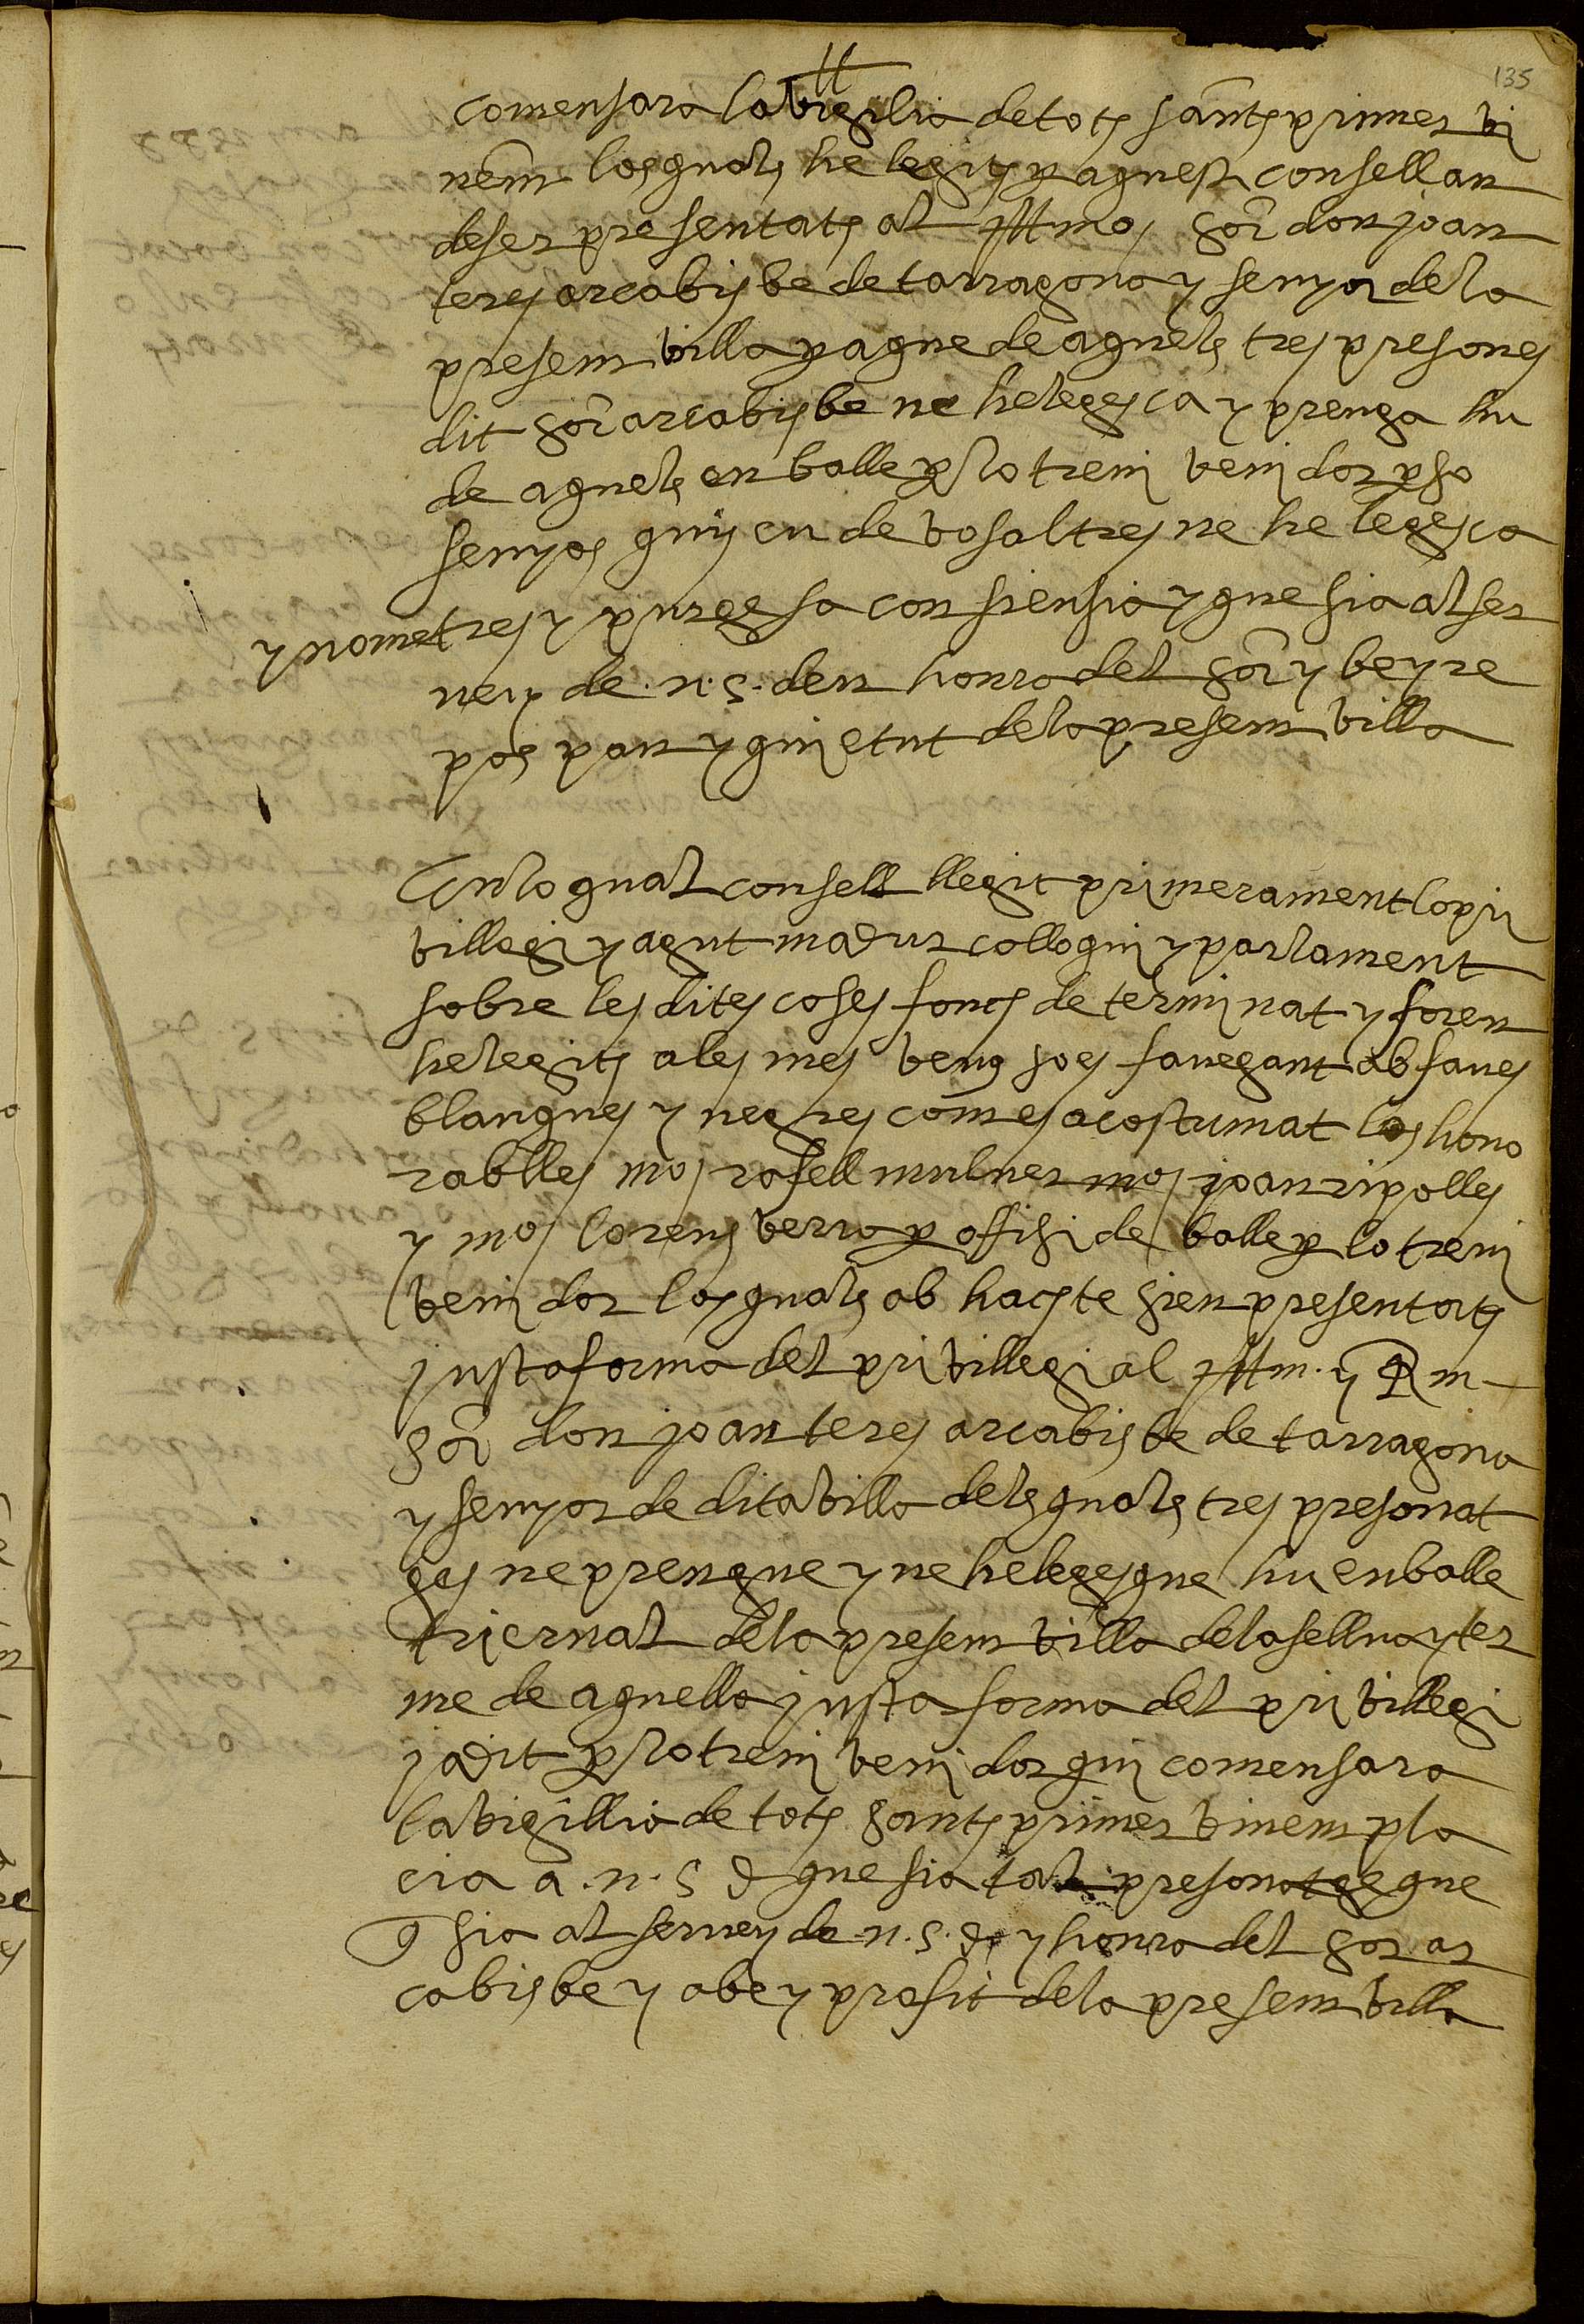 135
comensara la vigilia de tots sants primer vi
nent los quals helegits p aquest consell an
de ser presentats al Illmos Sor don joan
teres arcabisbe de tarragona y senyor de la
present villa p a que de aquels tres presones
dit Sor arcabisbe ne helegesca y prenga hu
de aquels en balle p lo trieni venidor p so
senyos quiscu de vosaltres ne helegesca
y nomene tres y purge sa consiensia y que sia al ser
vey de .n.S. deu honra del Sor y be y re
pos pau y quietut de la present villa
En lo qual consell llegit primerament lo pri
villegi y agut madur colloqui y parlament
sobre les dites coses fonch determinat y foren
helegits a les mes veus so es favegant ab faves
blanques y negres com es acostumat los hono
rablles mos rafell mulner mos joan ripolles
y mos lorens verra p offisi de balle p lo trieni
venidor los quals ab hacte sien presentats
justa forma del privillegi al Illm. y Rm
Sor don joan teres arcabisbe de tarragona
y senyor de dita villa dels quals tres presonat
ges ne prengue y ne helegesque hu en balle
triernal de la present villa de la sellva y ter
me de aquella justa forma del privillegi
ja dit p lo trieni venidor qui comensara
la vigillia de tots sants primer vinent pla
cia a .n.S. D que sia tal presonatge que
sia al servey de .n.S.D. y honra del Sor ar
cabisbe y a be y profit de la present villa